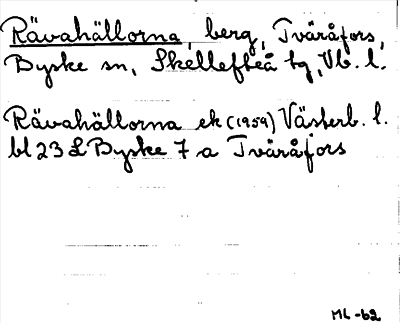 Rävahällorna, berg, Tvåråfors,
Byske sn, Skellefteå tg, Vb. l.
Rävahällorna ek (1959) Västerb. l.
bl 23 L Byske 7 a Tvåråfors
ML -62